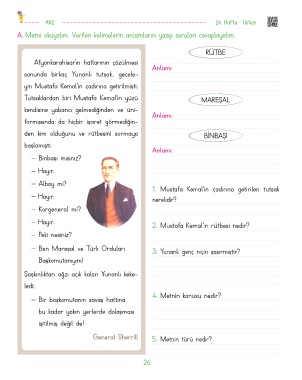 ANI
24. Hafta - Türkçe
A. Metni okuyalım. Verilen kelimelerin anlamlarını yazıp soruları cevaplayalım.
Afyonkarahisar'ın hatlarının çözülmesi
sonunda birkaç Yunanlı tutsak, gecele-
yin Mustafa Kemal'in çadırına getirilmişti.
Tutsaklardan biri Mustafa Kemal'in yüzü
kendisine yabancı gelmediğinden ve üni-
formasında da hiçbir işaret görmediğin-
den kim olduğunu ve rütbesini sormaya
başlamıştı:
– Binbaşı mısınız?
– Hayır.
– Albay mı?
– Hayır.
– Korgeneral mi?
– Hayır.
– Peki nesiniz?
– Ben Mareşal ve Türk Orduları
Başkomutanıyım!
Şaşkınlıktan ağzı açık kalan Yunanlı keke-
ledi:
– Bir başkomutanın savaş hattına
bu kadar yakın yerlerde dolaşması
işitilmiş değil de!
General Sherrill
RÜTBE
Anlamı:
MAREŞAL
Anlamı:
BİNBAŞI
Anlamı:
1. Mustafa Kemal'in çadırına getirilen tutsak
nerelidir?
2. Mustafa Kemal'in rütbesi nedir?
3. Yunanlı genç niçin şaşırmıştır?
4. Metnin konusu nedir?
5. Metnin türü nedir?
26